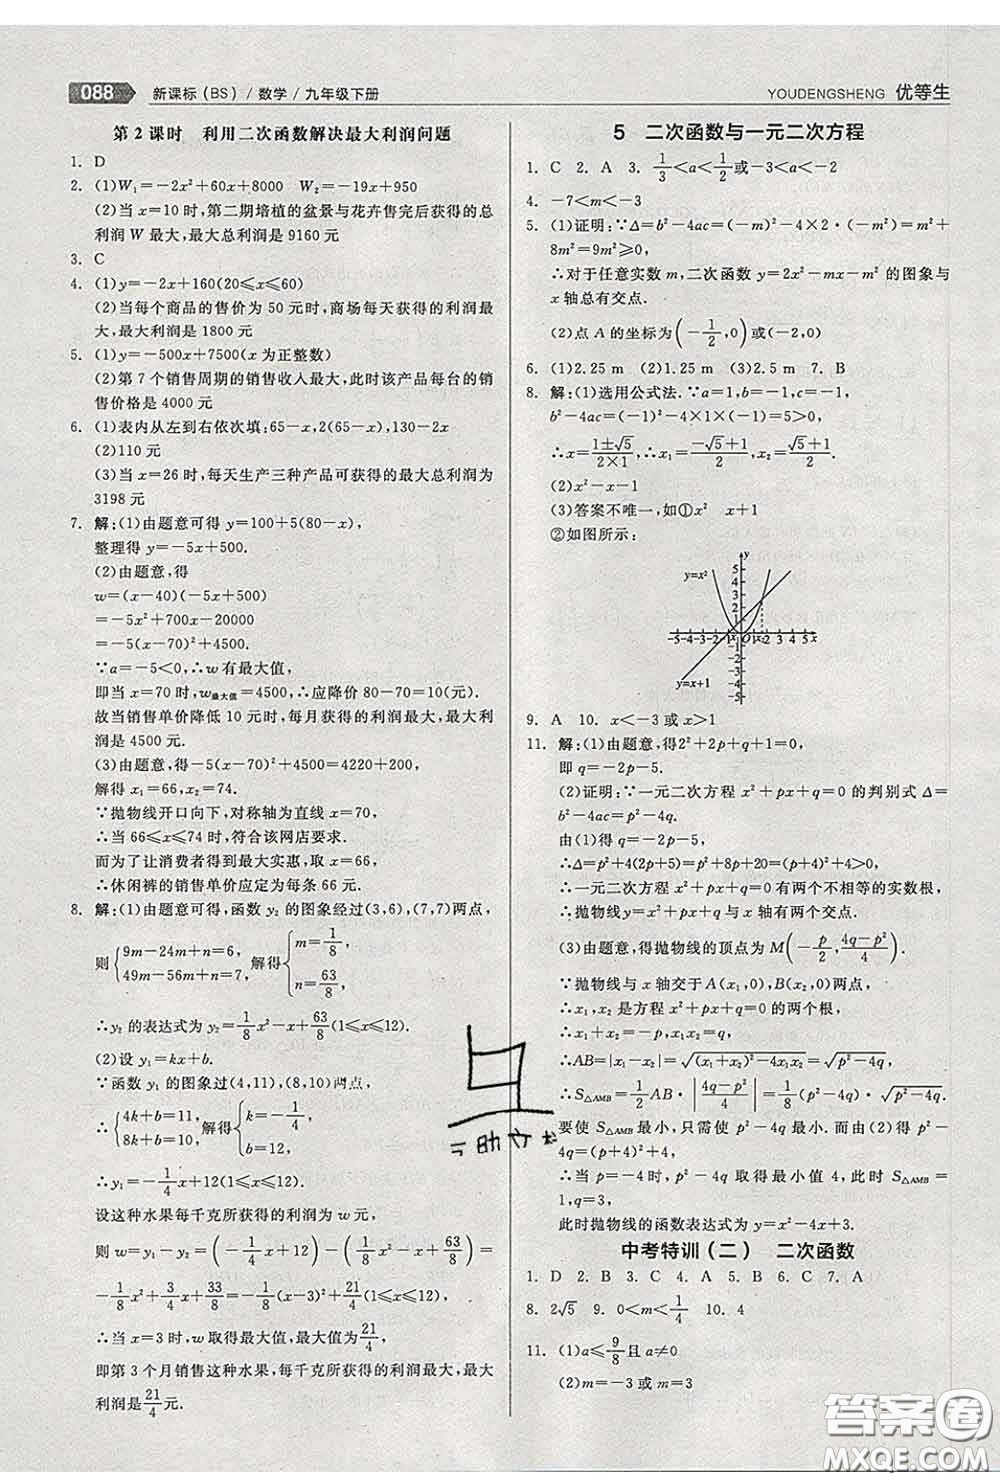 088 新课标(BS)/数学/九年级下册
YOUDENGSHENG 优等生
第2课时 利用二次函数解决最大利润问题
1. D
2. (1)W₁=−2x²+60x+8000 W₂=−19x+950
(2)当x=10时,第二期培植的盆景与花卉售完后获得的总
利润W最大,最大总利润是9160元
3. C
4. (1)y=−2x+160(20≤x≤60)
(2)当每个商品的售价为50元时,商场每天获得的利润最
大,最大利润是1800元
5. (1)y=−500x+7500(x为正整数)
(2)第7个销售周期的销售收入最大,此时该产品每台的销
售价格是4000元
6. (1)表内从左到右依次填:65−x,2(65−x),130−2x
(2)110元
(3)当x=26时,每天生产三种产品可获得的最大总利润为
3198元
7. 解:(1)由题意可得y=100+5(80−x),
整理得y=−5x+500.
(2)由题意,得
w=(x−40)(−5x+500)
=−5x²+700x−20000
=−5(x−70)²+4500.
∵a=−5<0,∴w有最大值.
即当x=70时,w最大值=4500,∴应降价80−70=10(元).
故当销售单价降低10元时,每月获得的利润最大,最大利
润是4500元.
(3)由题意,得−5(x−70)²+4500=4220+200,
解得x₁=66,x₂=74.
∵抛物线开口向下,对称轴为直线x=70,
∴当66≤x≤74时,符合该网店要求.
而为了让消费者得到最大实惠,故取x=66.
∴休闲裤的销售单价应定为每条66元.
8. 解:(1)由题意可得,函数y₂的图象经过(3,6),(7,7)两点,
则{9m−24m+n=6, 49m−56m+n=7, 解得{m=1/8, n=63/8.
∴y₂的表达式为y₂=1/8x²−x+63/8(1≤x≤12).
(2)设y₁=kx+b.
∵函数y₁的图象过(4,11),(8,10)两点,
∴{4k+b=11, 8k+b=10, 解得{k=−1/4, b=12.
∴y₁=−1/4x+12(1≤x≤12).
设这种水果每千克所获得的利润为w元,
则w=y₁−y₂=(−1/4x+12)−(1/8x²−x+63/8)=
−1/8x²+3/4x+33/8=−1/8(x−3)²+21/4(1≤x≤12).
∴当x=3时,w取得最大值,最大值为21/4,
即第3个月销售这种水果,每千克所获得的利润最大,最大
利润是21/4元.
5 二次函数与一元二次方程
1. C 2. A 3. 1/3<a<1/2或−3<a<−2
4. −7<m<−3
5. (1)证明:∵Δ=b²−4ac=(−m)²−4×2·(−m²)=m²+
8m²=9m²≥0,
∴对于任意实数m,二次函数y=2x²−mx−m²的图象与
x轴总有交点.
(2)点A的坐标为(−1/2,0)或(−2,0)
6. (1)2.25 m (2)1.25 m (3)2.5 m 7. B
8. 解:(1)选用公式法.∵a=1,b=−1,c=−1,
b²−4ac=(−1)²−4×1×(−1)=5>0,
∴x=(1±√5)/(2×1),∴x₁=(−√5+1)/2,x₂=(√5+1)/2.
(2)x²−x
(3)答案不唯一,如①x² x+1
②如图所示:
y
y=x²
5
4
3
2
1
−5−4−3−2−1 x₁ O 1 x₂ 2 3 4 5 x
−1
−2
−3
−4
−5
y=x+1
9. A 10. x<−3或x>1
11. 解:(1)由题意,得2²+2p+q+1=0,
即q=−2p−5.
(2)证明:∵一元二次方程x²+px+q=0的判别式Δ=
b²−4ac=p²−4q.
由(1)得q=−2p−5,
∴Δ=p²+4(2p+5)=p²+8p+20=(p+4)²+4>0,
∴一元二次方程x²+px+q=0有两个不相等的实数根,
∴抛物线y=x²+px+q与x轴有两个交点.
(3)由题意,得抛物线的顶点为M(−p/2,(4q−p²)/4).
∵抛物线与x轴交于A(x₁,0),B(x₂,0)两点,
∴x₁,x₂是方程x²+px+q=0的两个根,
∴x₁+x₂=−p,x₁x₂=q,
∴AB=|x₁−x₂|=√((x₁+x₂)²−4x₁x₂)=√(p²−4q),
∴S△AMB=1/2AB·|(4q−p²)/4|=1/8(p²−4q)·√(p²−4q).
要使S△AMB最小,只需使p²−4q最小.而由(2)得p²−
4q=(p+4)²+4,
∴当p=−4时,p²−4q取得最小值4,此时S△AMB=
1,q=3,
此时抛物线的函数表达式为y=x²−4x+3.
中考特训(二) 二次函数
1. D 2. B 3. C 4. A 5. B 6. C 7. A
8. 2√5 9. 0<m<1/4 10. 4
11. (1)a≤9/8且a≠0
(2)m=−3或m=3
答案圈
MXQE.COM